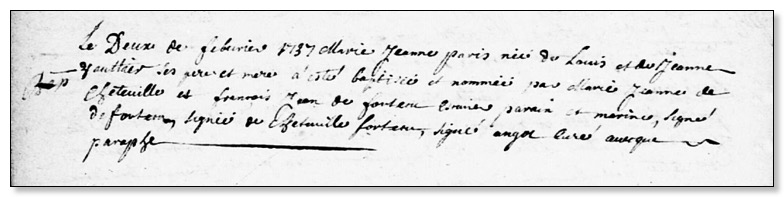 Le Deux de feburier 1737 Marie Jeanne paris née de Louis et de Jeanne
Gauttier ses pere et mere a esté baptisée et nommée par Marie Jeanne de
Cheteuille et francois Jean de forteau parain et marine, signé
de forteau, signée de Cheteuille forteau, signé angot curé auecque
paraphe